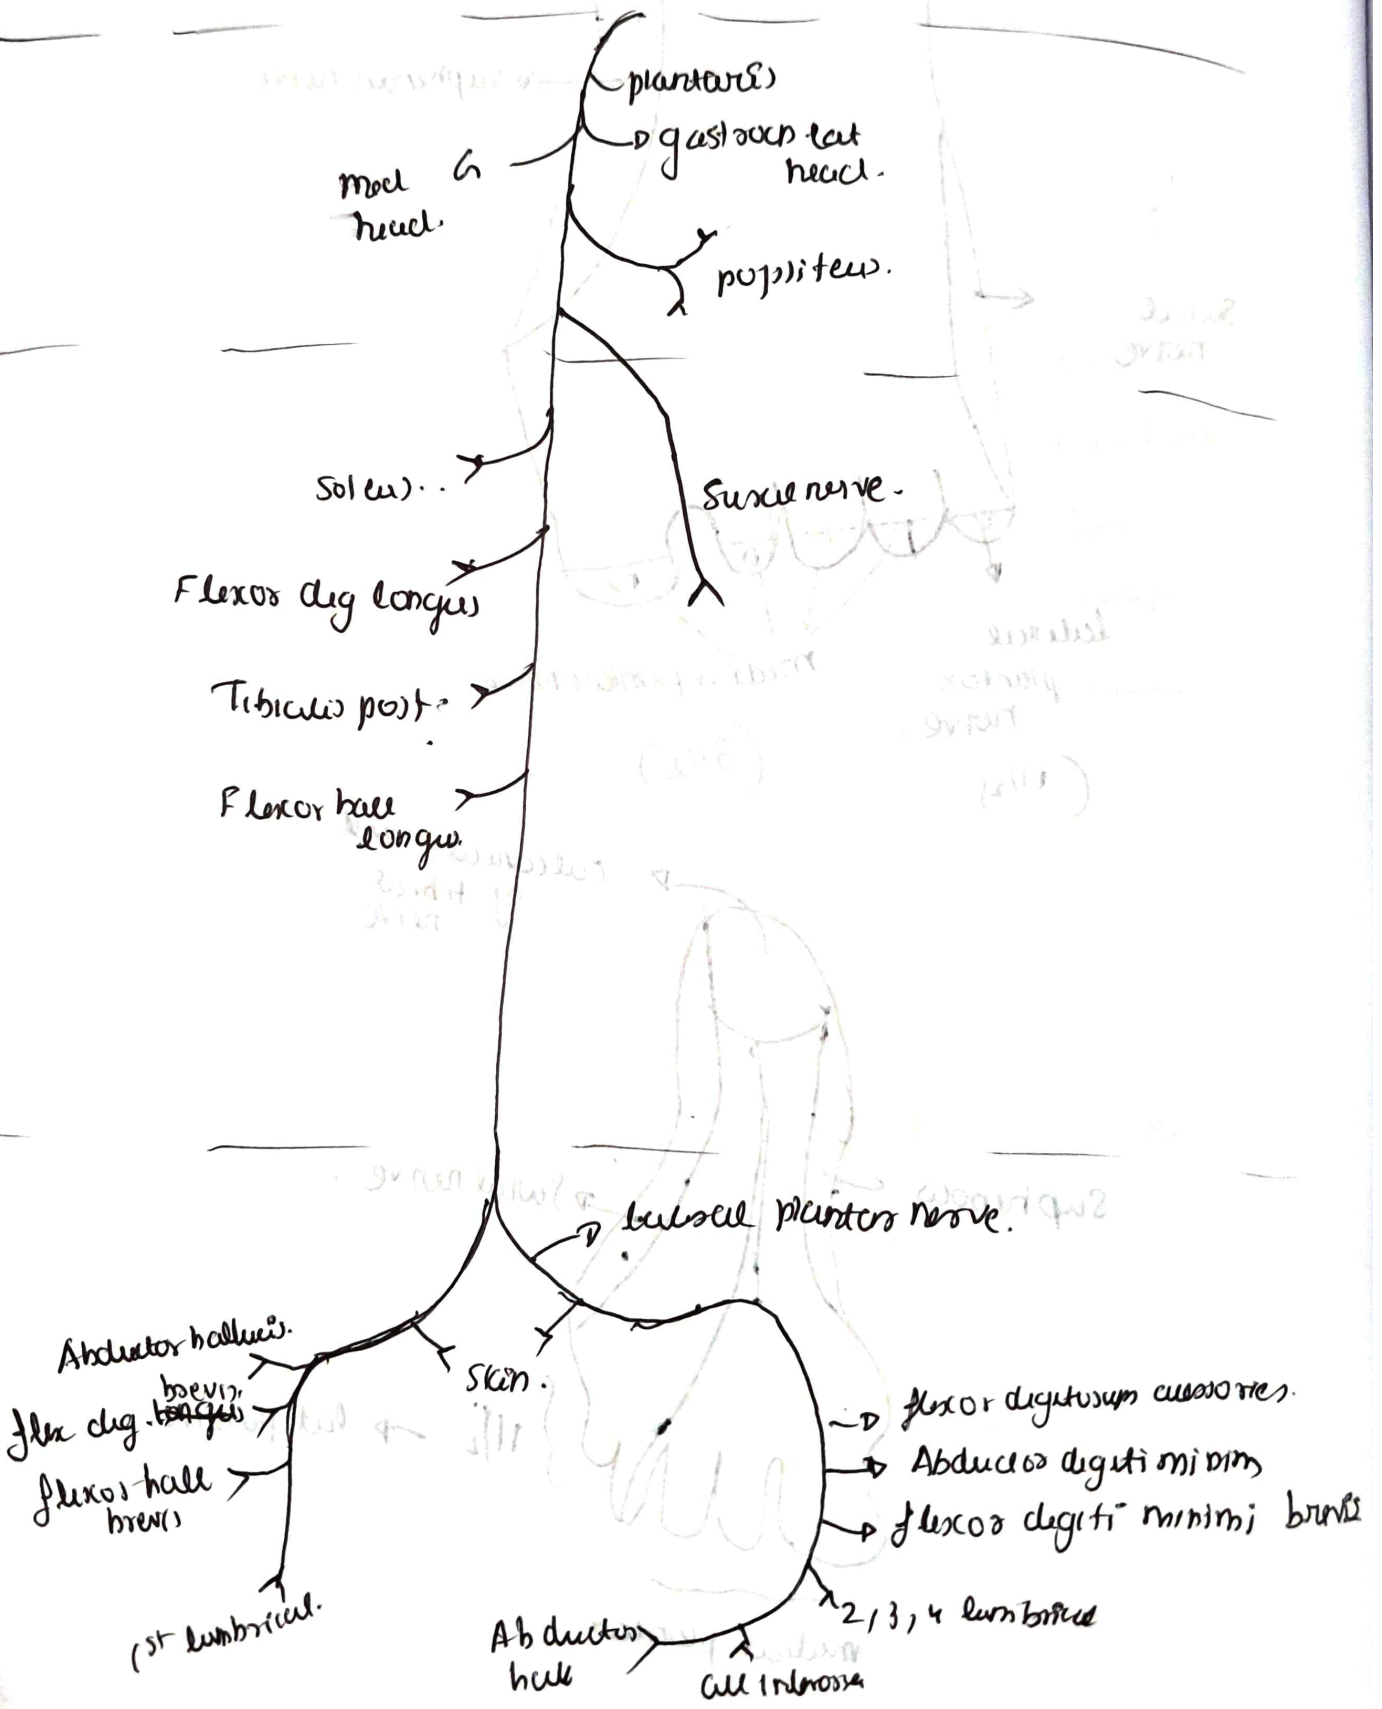 plantaris
gastrocn lat
head.
med G
head.
popliteus.
soleus..
sural nerve.
Flexor dig longus
Tibialis post.
Flexor hall
longus.
lateral plantar nerve.
Abductor hallucis.
skin.
brevis.
flex dig. longus
flexor hall
brevis
1st lumbrical.
flexor digitorum accessories.
Abductor digiti minimi
flexor digiti minimi brevis
2, 3, 4 lumbrical
Abductor
hall
all interossei